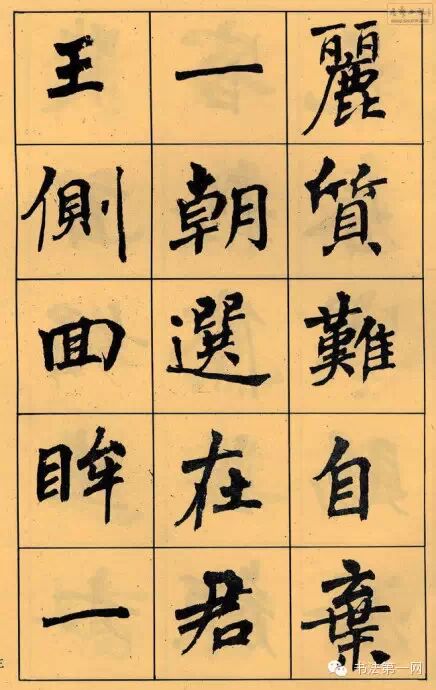 麗質難自棄
一朝選在君
王側回眸一
书法第一网